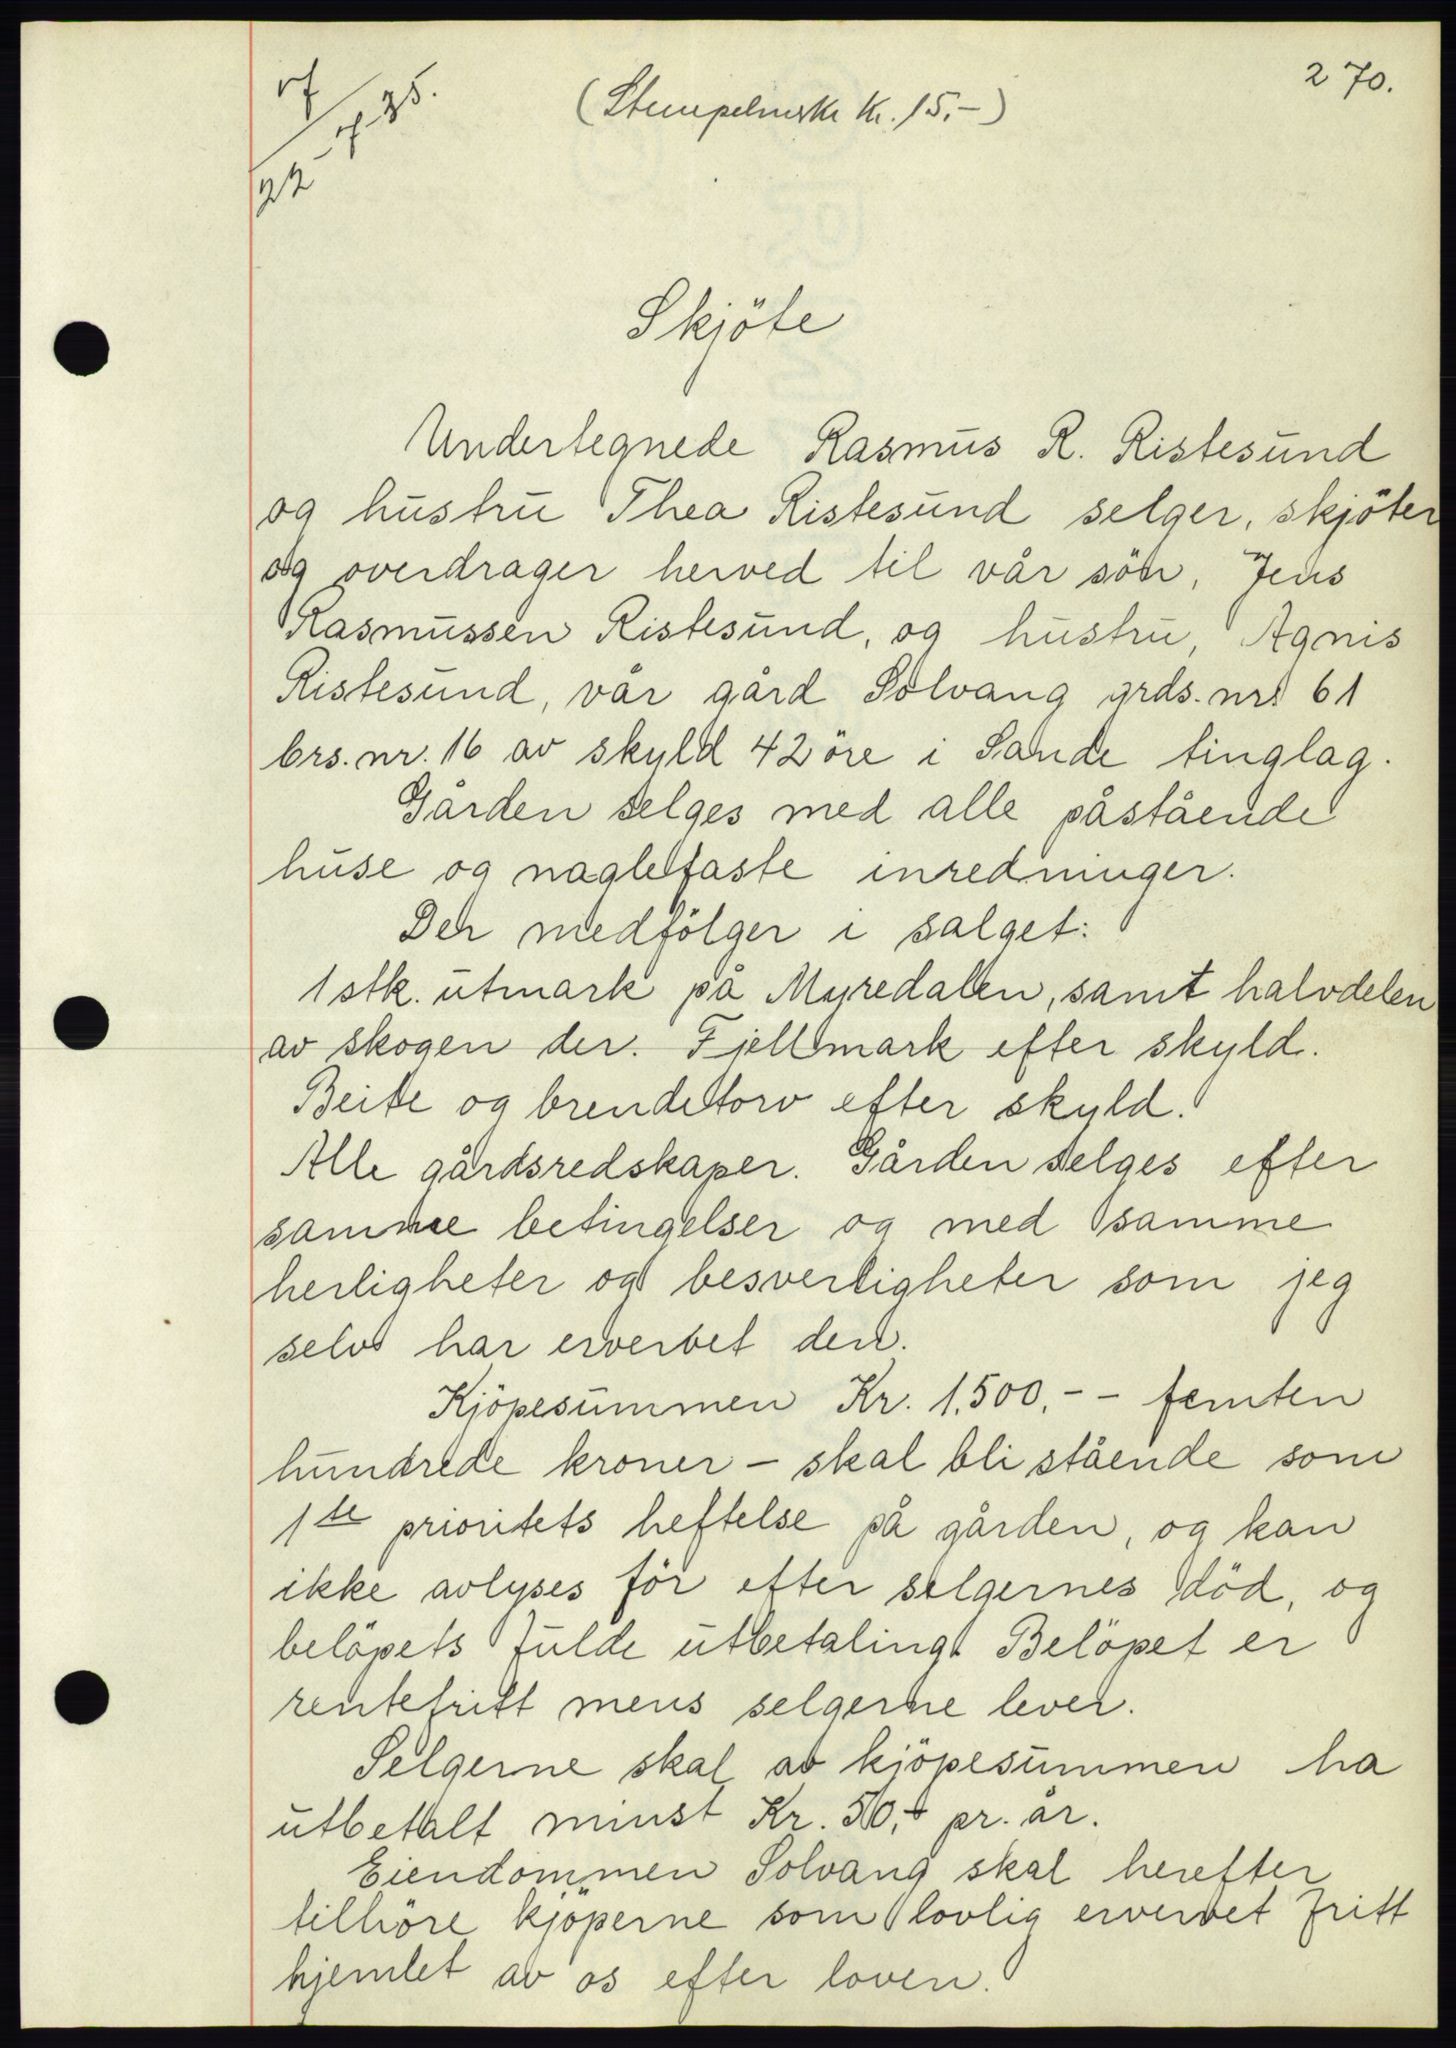 270.
(Stempelmerke Kr. 15,-)
22
Skjöte
Undertegnede Rasmus R. Ristesund
og hustru Thea Ristesund selger, skjöter
og overdrager herved til vår sön, Jens
Rasmussen Ristesund, og hustru, Agnis
Ristesund, vår gård Solvang grds. nr. 61
brs. nr. 16 av skyld 42 öre i Sande tinglag.
Gården selges med alle påstående
huse og naglefaste inredninger.
Der medfölger i salget:
1 stk. utmark på Myredalen, samt halvdelen
av skogen der. Fjellmark efter skyld.
Beite og brendetorv efter skyld.
Alle gårdsredskaper. Gården selges efter
samme betingelser og med samme
herligheter og besverligheter som jeg
selv har ervervet den.
Kjöpesummen Kr. 1.500.-- femten
hundrede kroner - skal bli stående som
1ste prioritets heftelse på gården, og kan
ikke avlyses för efter selgernes död, og
belöpets fulde utbetaling. Belöpet er
rentefritt mens selgerne lever.
Selgerne skal av kjöpesummen ha
utbetalt minst Kr. 50,- pr. år.
Eiendommen Solvang skal herefter
tilhöre kjöperne som lovlig ervervet fritt
hjemlet av os efter loven.